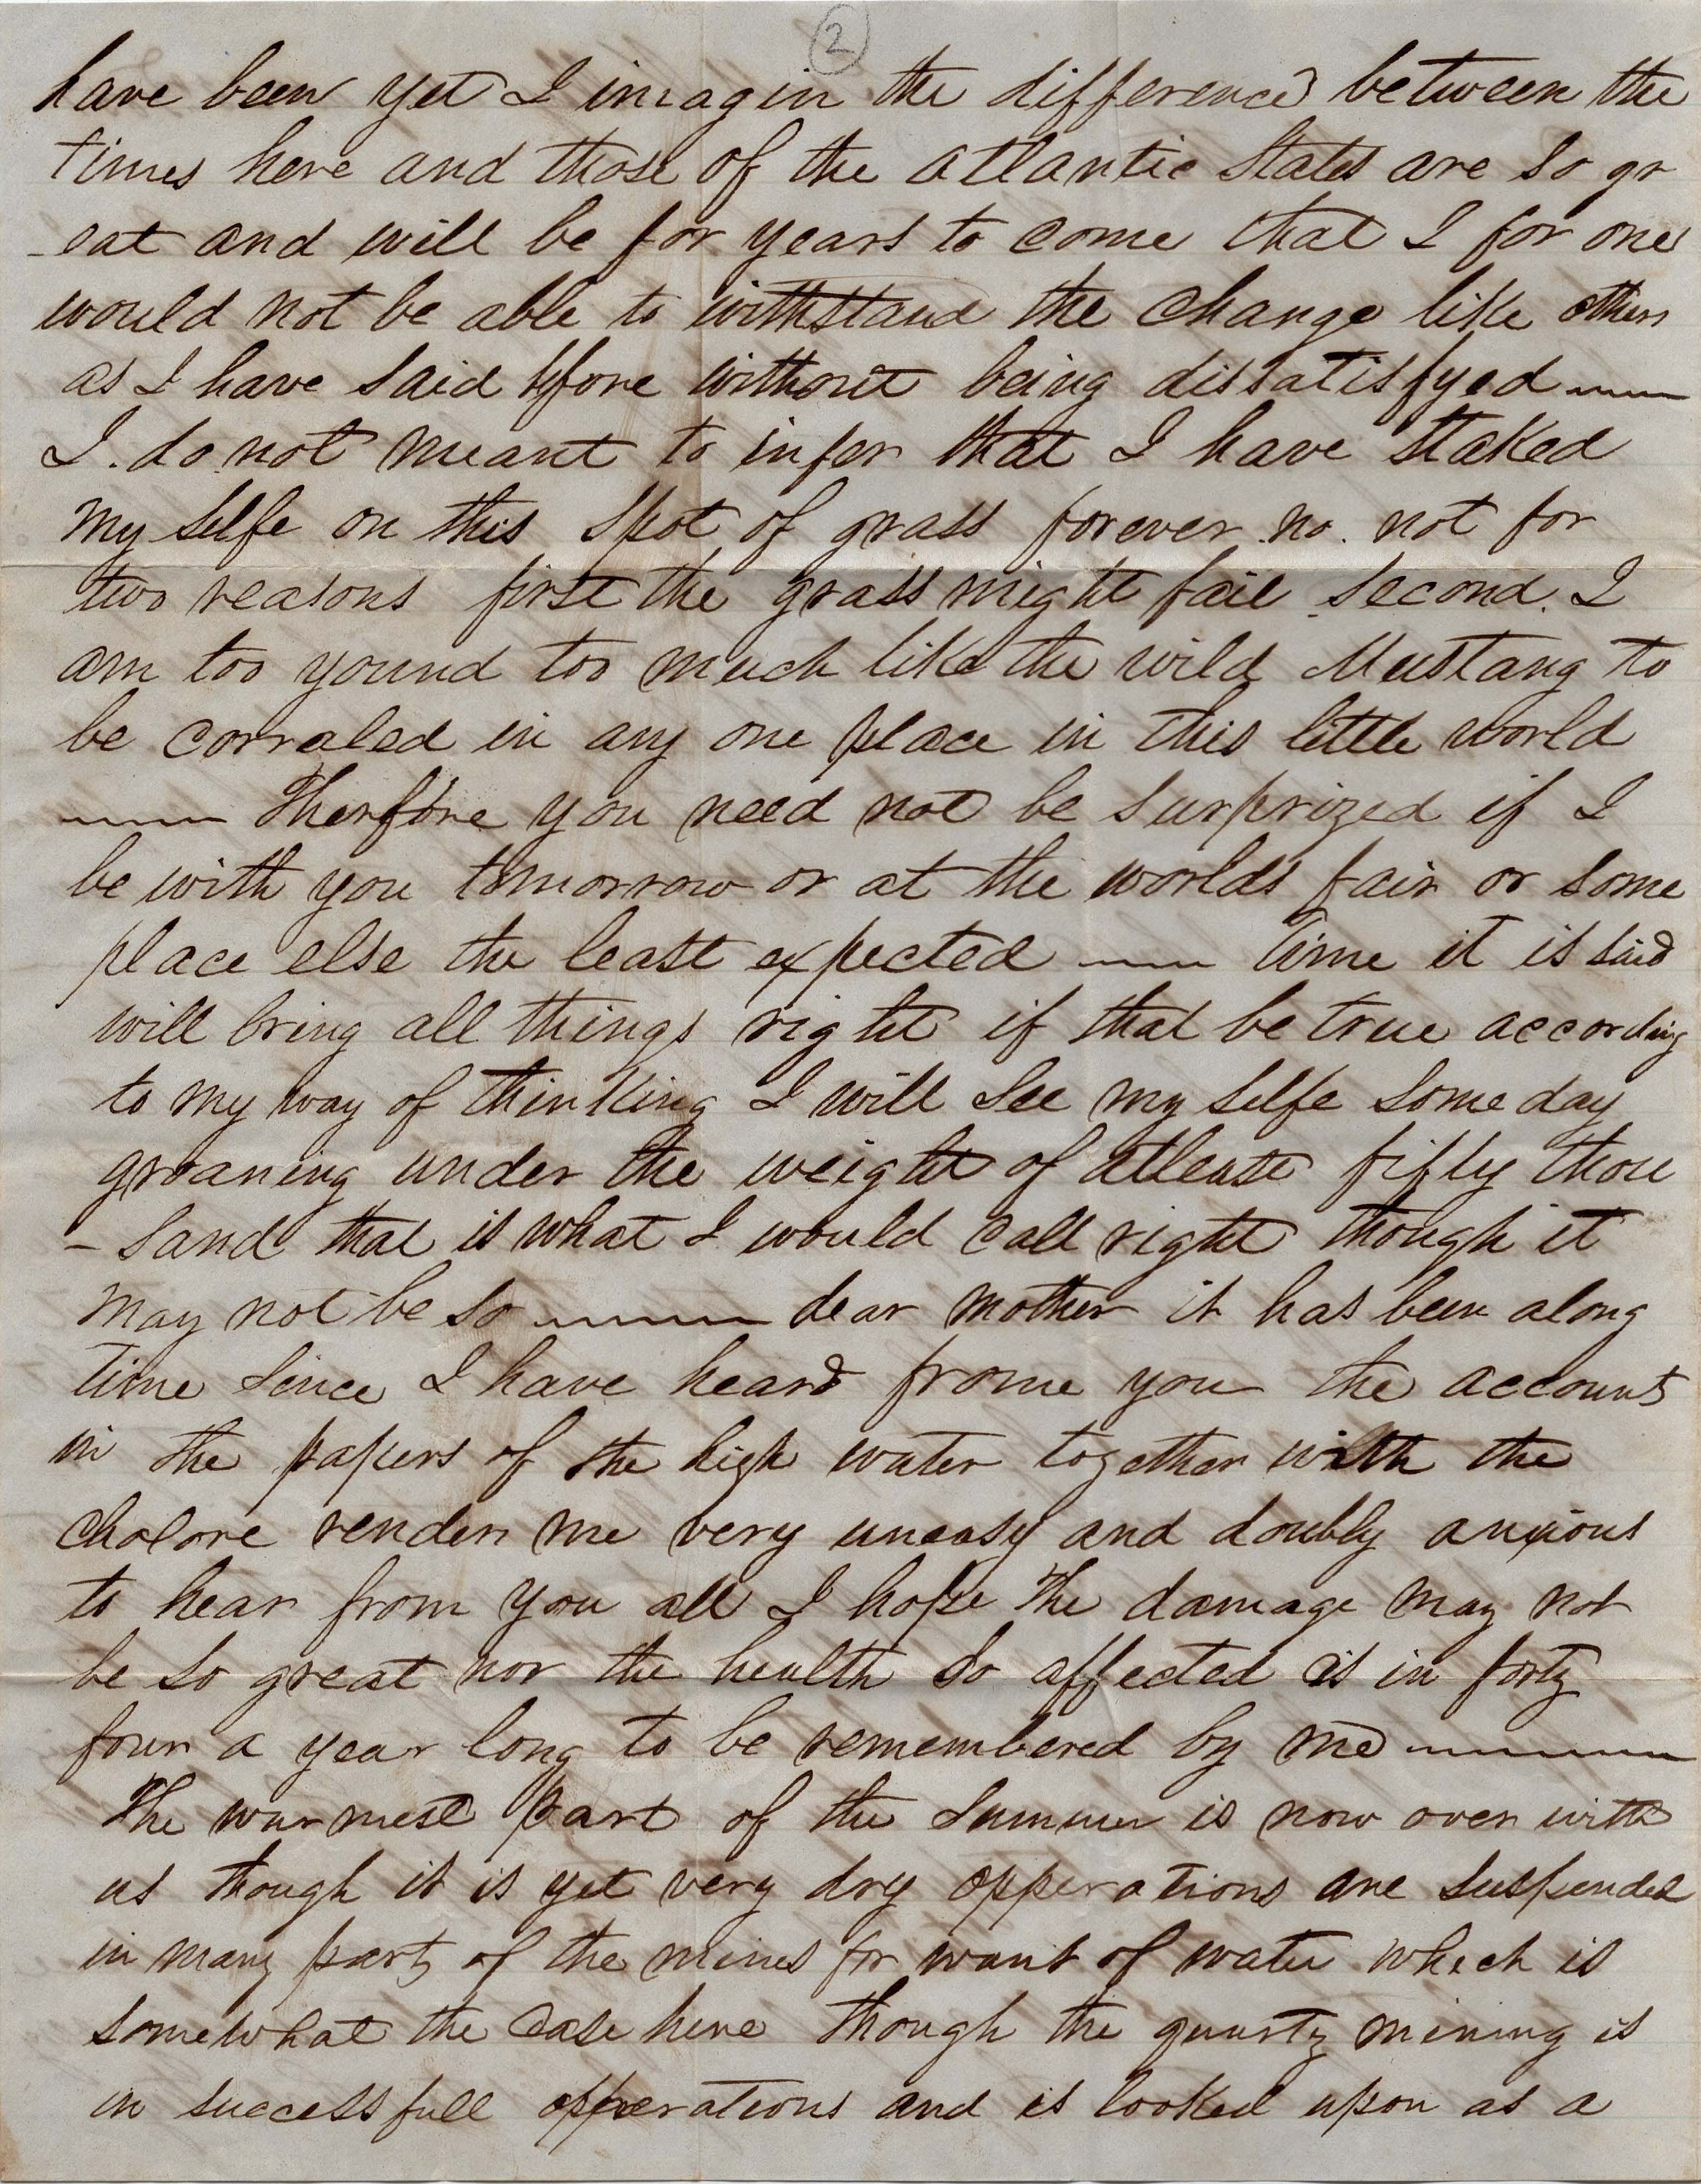 2
have been yet I imagin the difference between the
times here and those of the atlantic States are so gr
-eat and will be for years to come that I for one
would not be able to withstand the change like others
as I have said bfore without being dissatisfyed ~~~
I. do not meant to infer that I have staked
my selfe on this spot of grass forever. no. not for
two reasons first the grass might fail second. I
am too yound too much like the wild Mustang to
be corraled in any one place in this little world
~~~ Therfore you need not be surprized if I
be with you tomorrow or at the worlds fair or some
place else the least expected ~~~ time it is said
will bring all things right if that be true according
to my way of thinking I will see my selfe some day
groaning under the weight of atleast fifty thou
-sand that is what I would call right though it
may not be so ~~~ dear mother it has been along
time since I have heard frome you the accounts
in the papers of the high water together with the
cholore render me very uneasy and doubly anxious
to hear from you all I hope the damage may not
be so great nor the health so affected as in forty
four a year long to be remembered by me ~~~
The warmest part of the summer is now over with
us though it is yet very dry opperations are suspended
in many parts of the mines for want of water which is
somewhat the case here though the quartz mining is
in successfull opperations and is looked upon as a